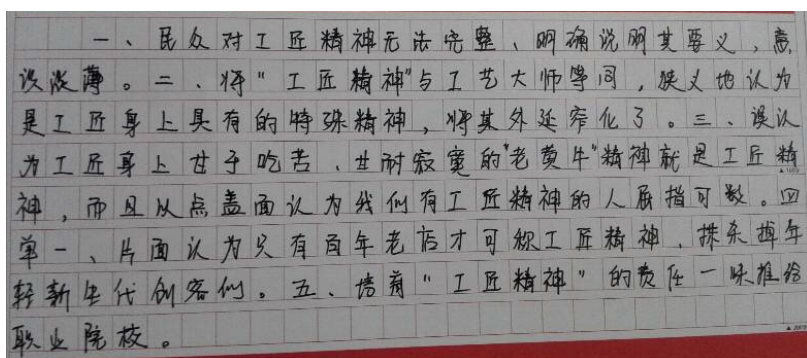 一、民众对工匠精神无法完整、明确说明其要义，意
识淡薄。二、将“工匠精神”与工艺大师等同，狭义地认为
是工匠身上具有的特殊精神，将其外延窄化了。三、误认
为工匠身上甘于吃苦、甘耐寂寞的“老黄牛”精神就是工匠精
神，而且以点盖面认为我们有工匠精神的人屈指可数。四
单一、片面认为只有百年老店才可称工匠精神、抹杀掉年
轻新生代创客们。五、培育“工匠精神”的责任一味推给
职业院校。